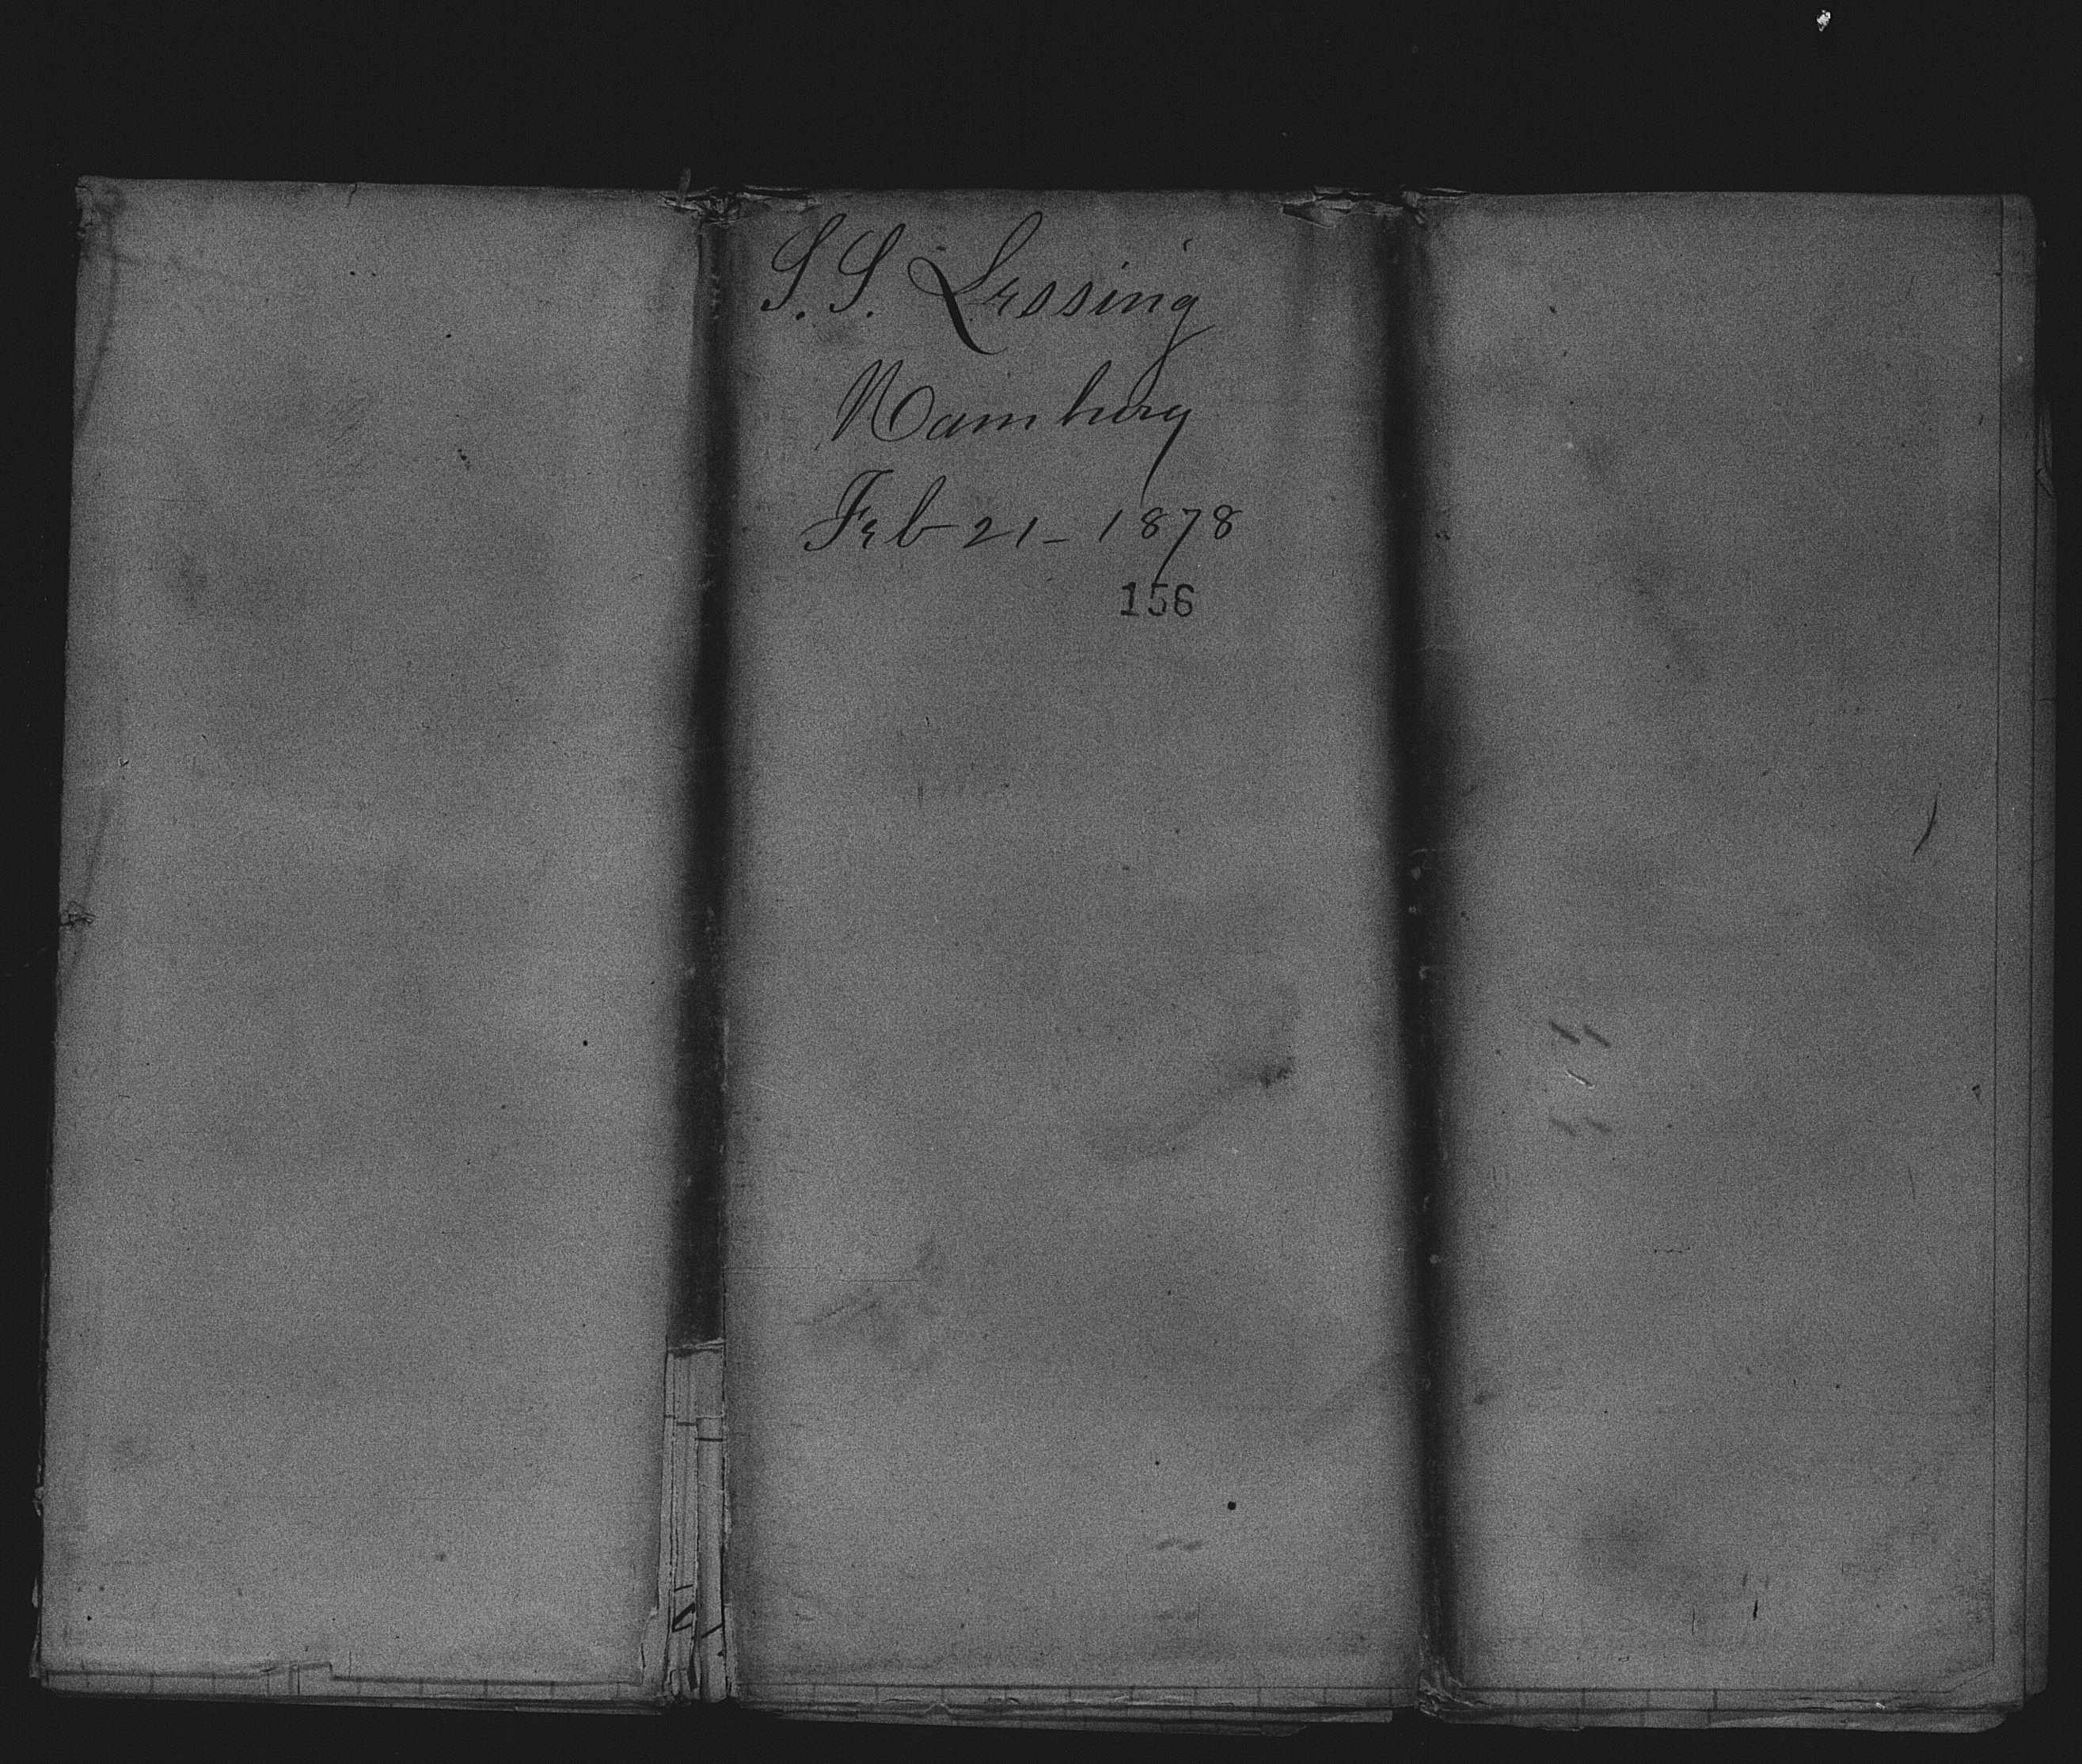 S.S. Lessing
Hamburg
Feb 21 - 1878
156